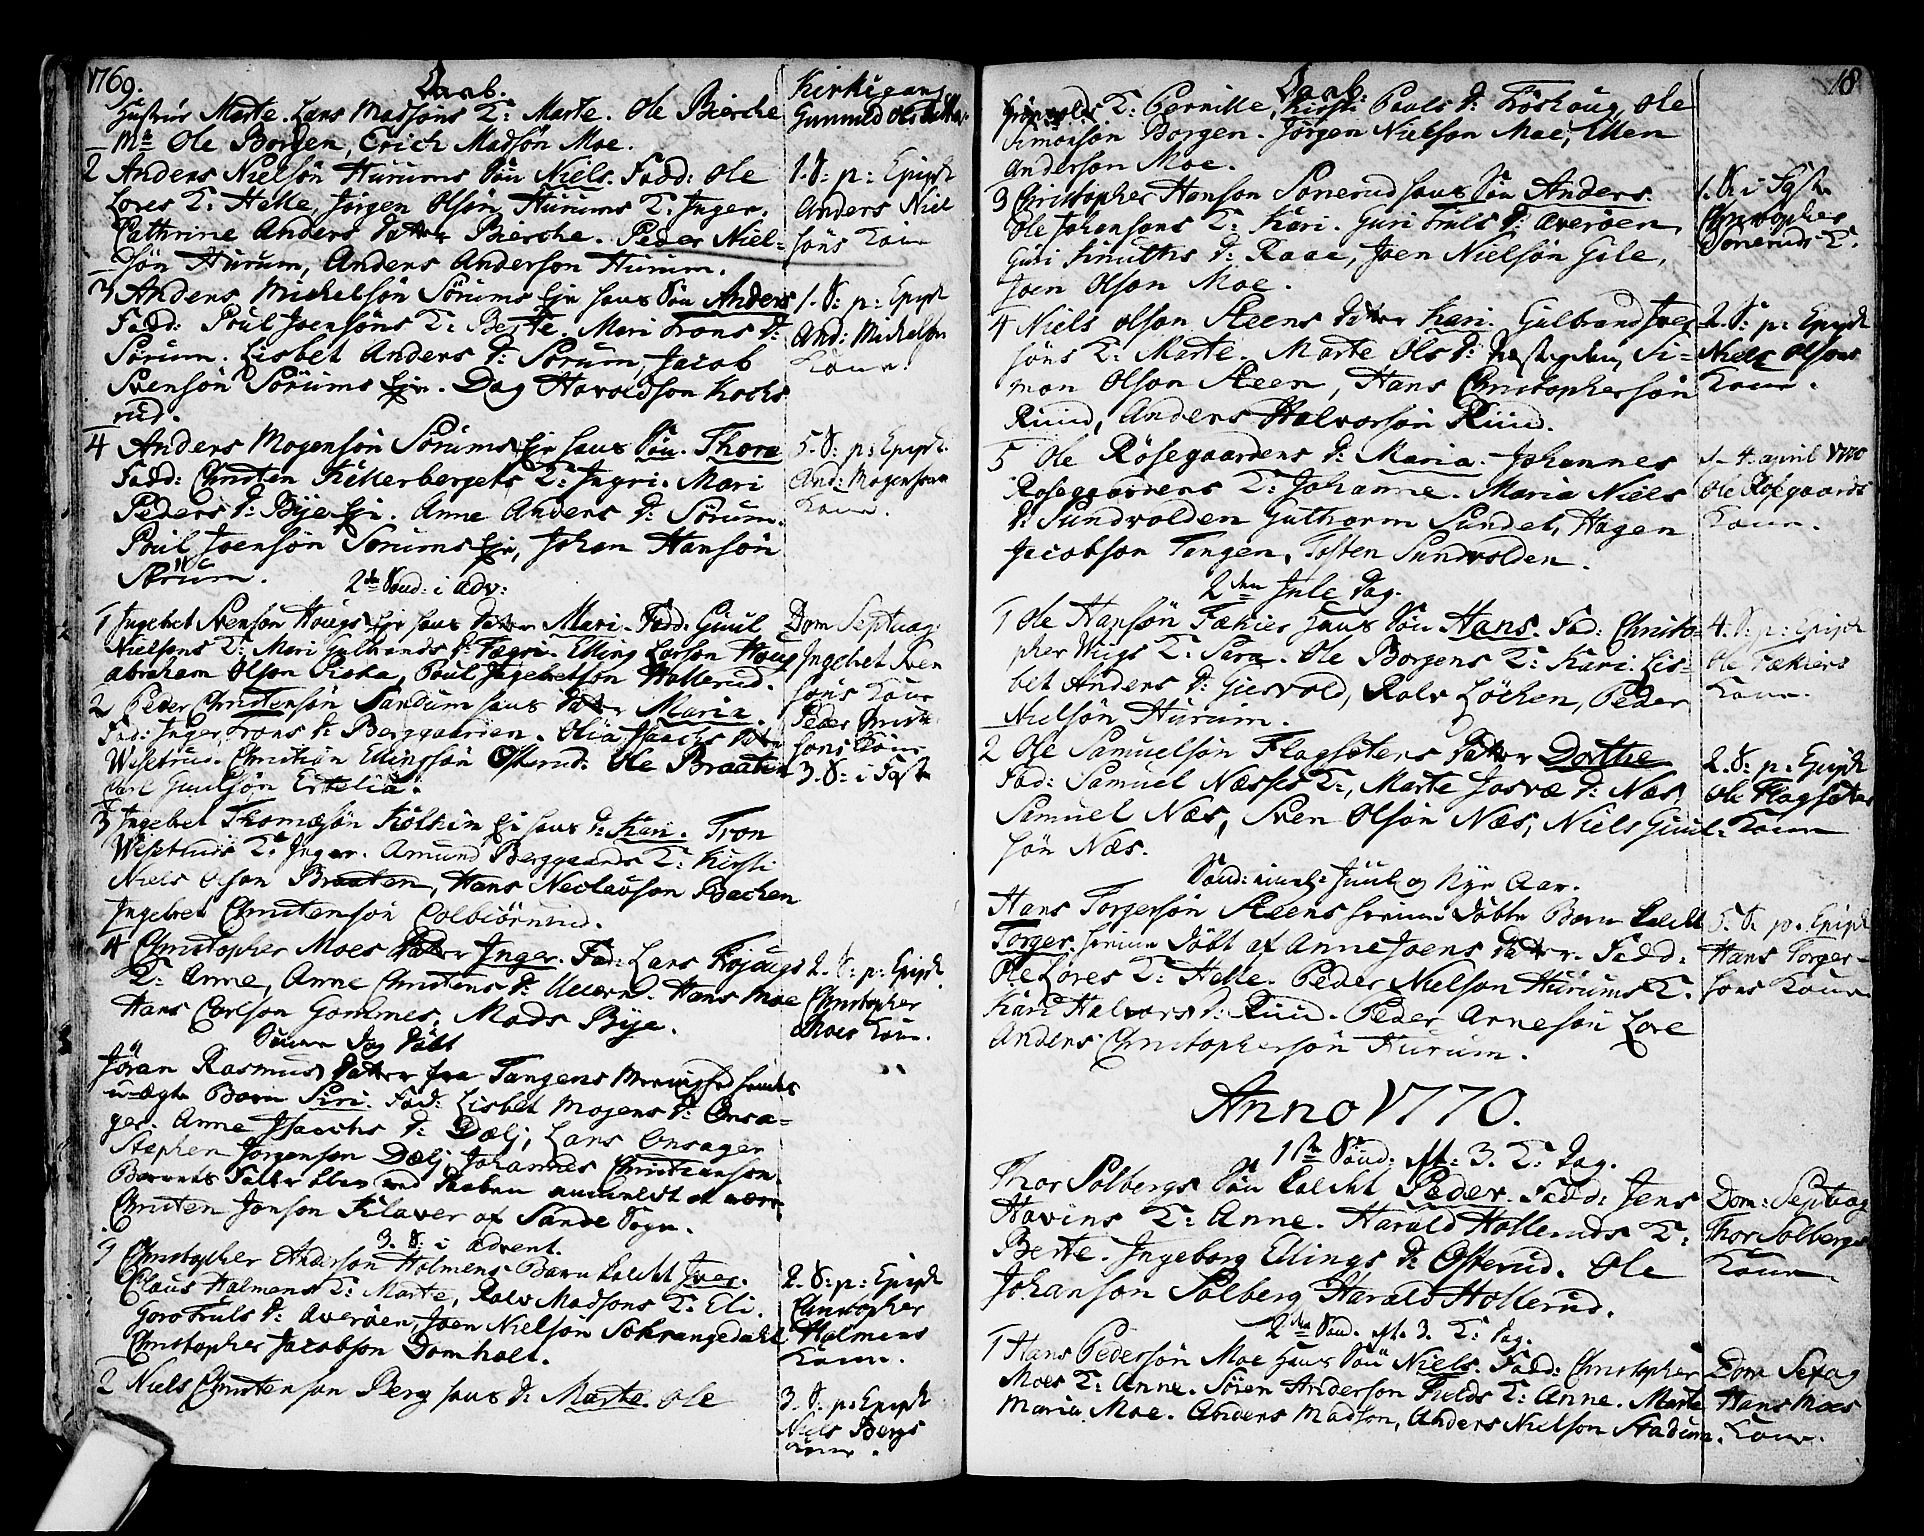 1769.
Daab.
Kirkegang
Hustrue Marte. Lars Madsöns K: Marte. Ole Bierche
Gunnild Ols datter
Mo Ole Borgen, Erich Madsön Moe.
2 Anders Nielsön Hurums Sön Niels. Fadd: Ole
Lores K: Helle, Jörgen Olsön Hurums K: Inger.
Cathrine Anders Datter Bierche. Peder Niel-
sön Hurum, Anders Anderson Hurum.
1. S: p: Epiph
Anders Niel
söns Kone
3 Anders Michelsön Sörums Eje hans Sön Anders
Fadd: Poul Joensöns K: Berte. Mari Trons D:
Sörum. Lisbet Anders D: Sörum, Jacob
Svensön Sörums Eje. Dag Haroldson Kochs
rud.
1. S: p: Epiph
And: Michelsen
Kone.
4 Anders Mogensön Sörums Eje hans Sön. Thora
Fadd: Christen Kitterbergets K: Ingri. Mari
Peders D: Bye Eje. Anne Anders D: Sörum.
Poul Joensön Sörums Eje, Johan Hansön
Sörum.
5. S: p: Epiph.
And: Mogensens
Kone.
2den Sönd: i Adv:
1 Ingebret Svensön Hougs Eje hans Datter Mari. Fadd: Guul
Nielsons K: Mari Gulbrands D: Fægri. Elling Larson Houg
Abraham Olson Piska, Poul Ingebretson Hollerud.
Dom Septuag:
Ingebret Sven
söns Kone
2 Peder Christensön Sandum hans Datter Maria.
Fad: Inger Trons D: Berggaarden. Olia Isaachs Datter
Wisetrud. Christian Ellingsön Osterud. Ole Braaten
Carl Guulsön Ertelia.
Peder Christen
sons Kone
3. S: i Fast
3 Ingebret Thomæsön Kolkin Eje hans D: Kari. Tron
Wisetruds K: Inger. Amund Berggaards K: Kirsti
Niels Olson Braaten, Hans Neclauson Bachen
Ingebret Christensön Colbiörnrud.
4 Christopher Moes Datter Inger. Fad: Lars Frojougs
K: Anne, Anne Christens D: Ulleren. Hans Moe
Hans Carlson Gommes, Mads Bye.
2. S: p: Epiph.
Christopher
Moes Kone.
Samme Dag Döbt
Jöran Rasmus Datter fra Tangens Menighed hendes
u-ægte Barn Siri. Fad: Lisbet Mogens D: Onsa-
ger. Anne Isaachs D: Dælj, Lars Onsager
Stephen Jörgenson Dælj, Johannes Christianson.
Barnets Fader blev ved Daaben anmeldt at være
Christen Jonson Klaver af Sande Sogn.
3. S: i Advent.
1 Christopher Anderson Holmens Barn kaldet Iver.
Claus Holmens K: Marte, Rolv Madsons K: Eli.
Goro Truls D: Averöen, Joen Nielsön Sokrangedahl
Christopher Jacobson Domholt.
2. S: p: Epiph
Christopher
Holmens
Kone.
2 Niels Christenson Berg hans D: Marte. Ole
3. S: p: Epiph
Niels Bergs
Kone.
18
Daab.
Grönvolds K: Pernille, Kirsti Pouls D: Froshaug, Ole
Simonson Borgen. Jörgen Nielson Moe, Ellen
Anderson Moe.
3 Christopher Hanson Sonerud hans Sön Anders.
Ole Johansons K: Kari. Guri Truls D: Averöen
Guri Knuths D: Raae, Joen Nielsön Gile,
Joen Olson Moe.
1. S. i Fast
Christopher
Soneruds K.
4 Niels Olson Steens Datter Kari. Gulbrand Iver
söns K: Marte. Marte Ols D: Si-
mon Olson Steen, Hans Christophersön
Ruud, Anders Halvorson Ruud.
2. S: p: Epiph
Niels Olsons
Kone.
5 Ole Rösegaardens D: Maria. Johannes
Rosegaardens K: Johanne. Maria Niels
D: Sundvolden Guthorm Sundet, Hagen
Jacobson Tangen, Tosten Sundvolden.
d. 4. april 1770
Ole Rosegaards
Kone.
2den Jule Dag.
1 Ole Hansön Fækiers hans Sön Hans. Fad: Christo-
pher Wiigs K: Sara. Ole Borgens K: Kari. Lis-
bet Anders D: Giesvold, Rolv Löchen, Peder
Nielsön Hurum.
4. S: p: Epiph
Ole Fækiers
Kone.
2 Ole Samuelsön Flagsoters Datter Dorthe
Fad: Samuel Næsses K:, Marte Josvæ D: Næs
Samuel Næs, Sven Olsön Næs, Niels Guul-
sön Næs.
2. S: p: Epiph
Ole Flagsoters
Kone
Sönd: imel: Juul og Nye Aar.
Hans Torgersön Steens hiemme döbte Barn kaldet
Torger. hiemme Döbt af Anne Joens Datter. Fadd:
Ole Lores K: Helle. Peder Nielson Hurums K.
Kari Halvors D: Ruud. Peder Arnesön Lore
Anders Christophersön Hurum.
5. S. p. Epiph
Hans Torger-
sons Kone.
Anno 1770.
1ste Sönd: eft: 3. K: Dag.
Thor Solbergs Sön kaldet Peder. Fadd: Jens
Hovins K: Anne. Harald Hollerud K:
Berte. Ingeborg Ellings D: Osterud. Ole
Johanson Solberg Harald Hollerud.
Dom: Septuag
Thor Solbergs
Kone
2den Sönd. eft. 3. K: Dag.
1 Hans Pedersön Moe hans Sön Niels. Fadd: Christopher
Moes K: Anne. Sören Anderson Fields K: Anne. Marte
Maria Moe. Anders Madson, Anders Nielson Stadum.
Dom Sexag
Hans Moes
Kone.